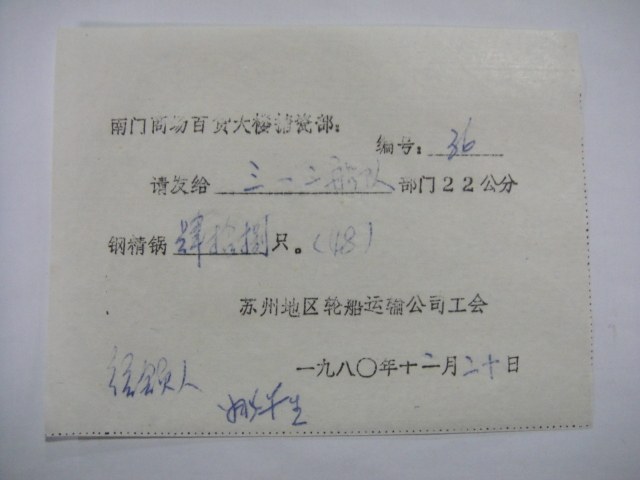 南门商场百货大楼搪瓷部：
编号：36
请发给三一二船队部门22公分
钢精锅肆拾捌只。(48)
苏州地区轮船运输公司工会
一九八〇年十二月二十日
经领人